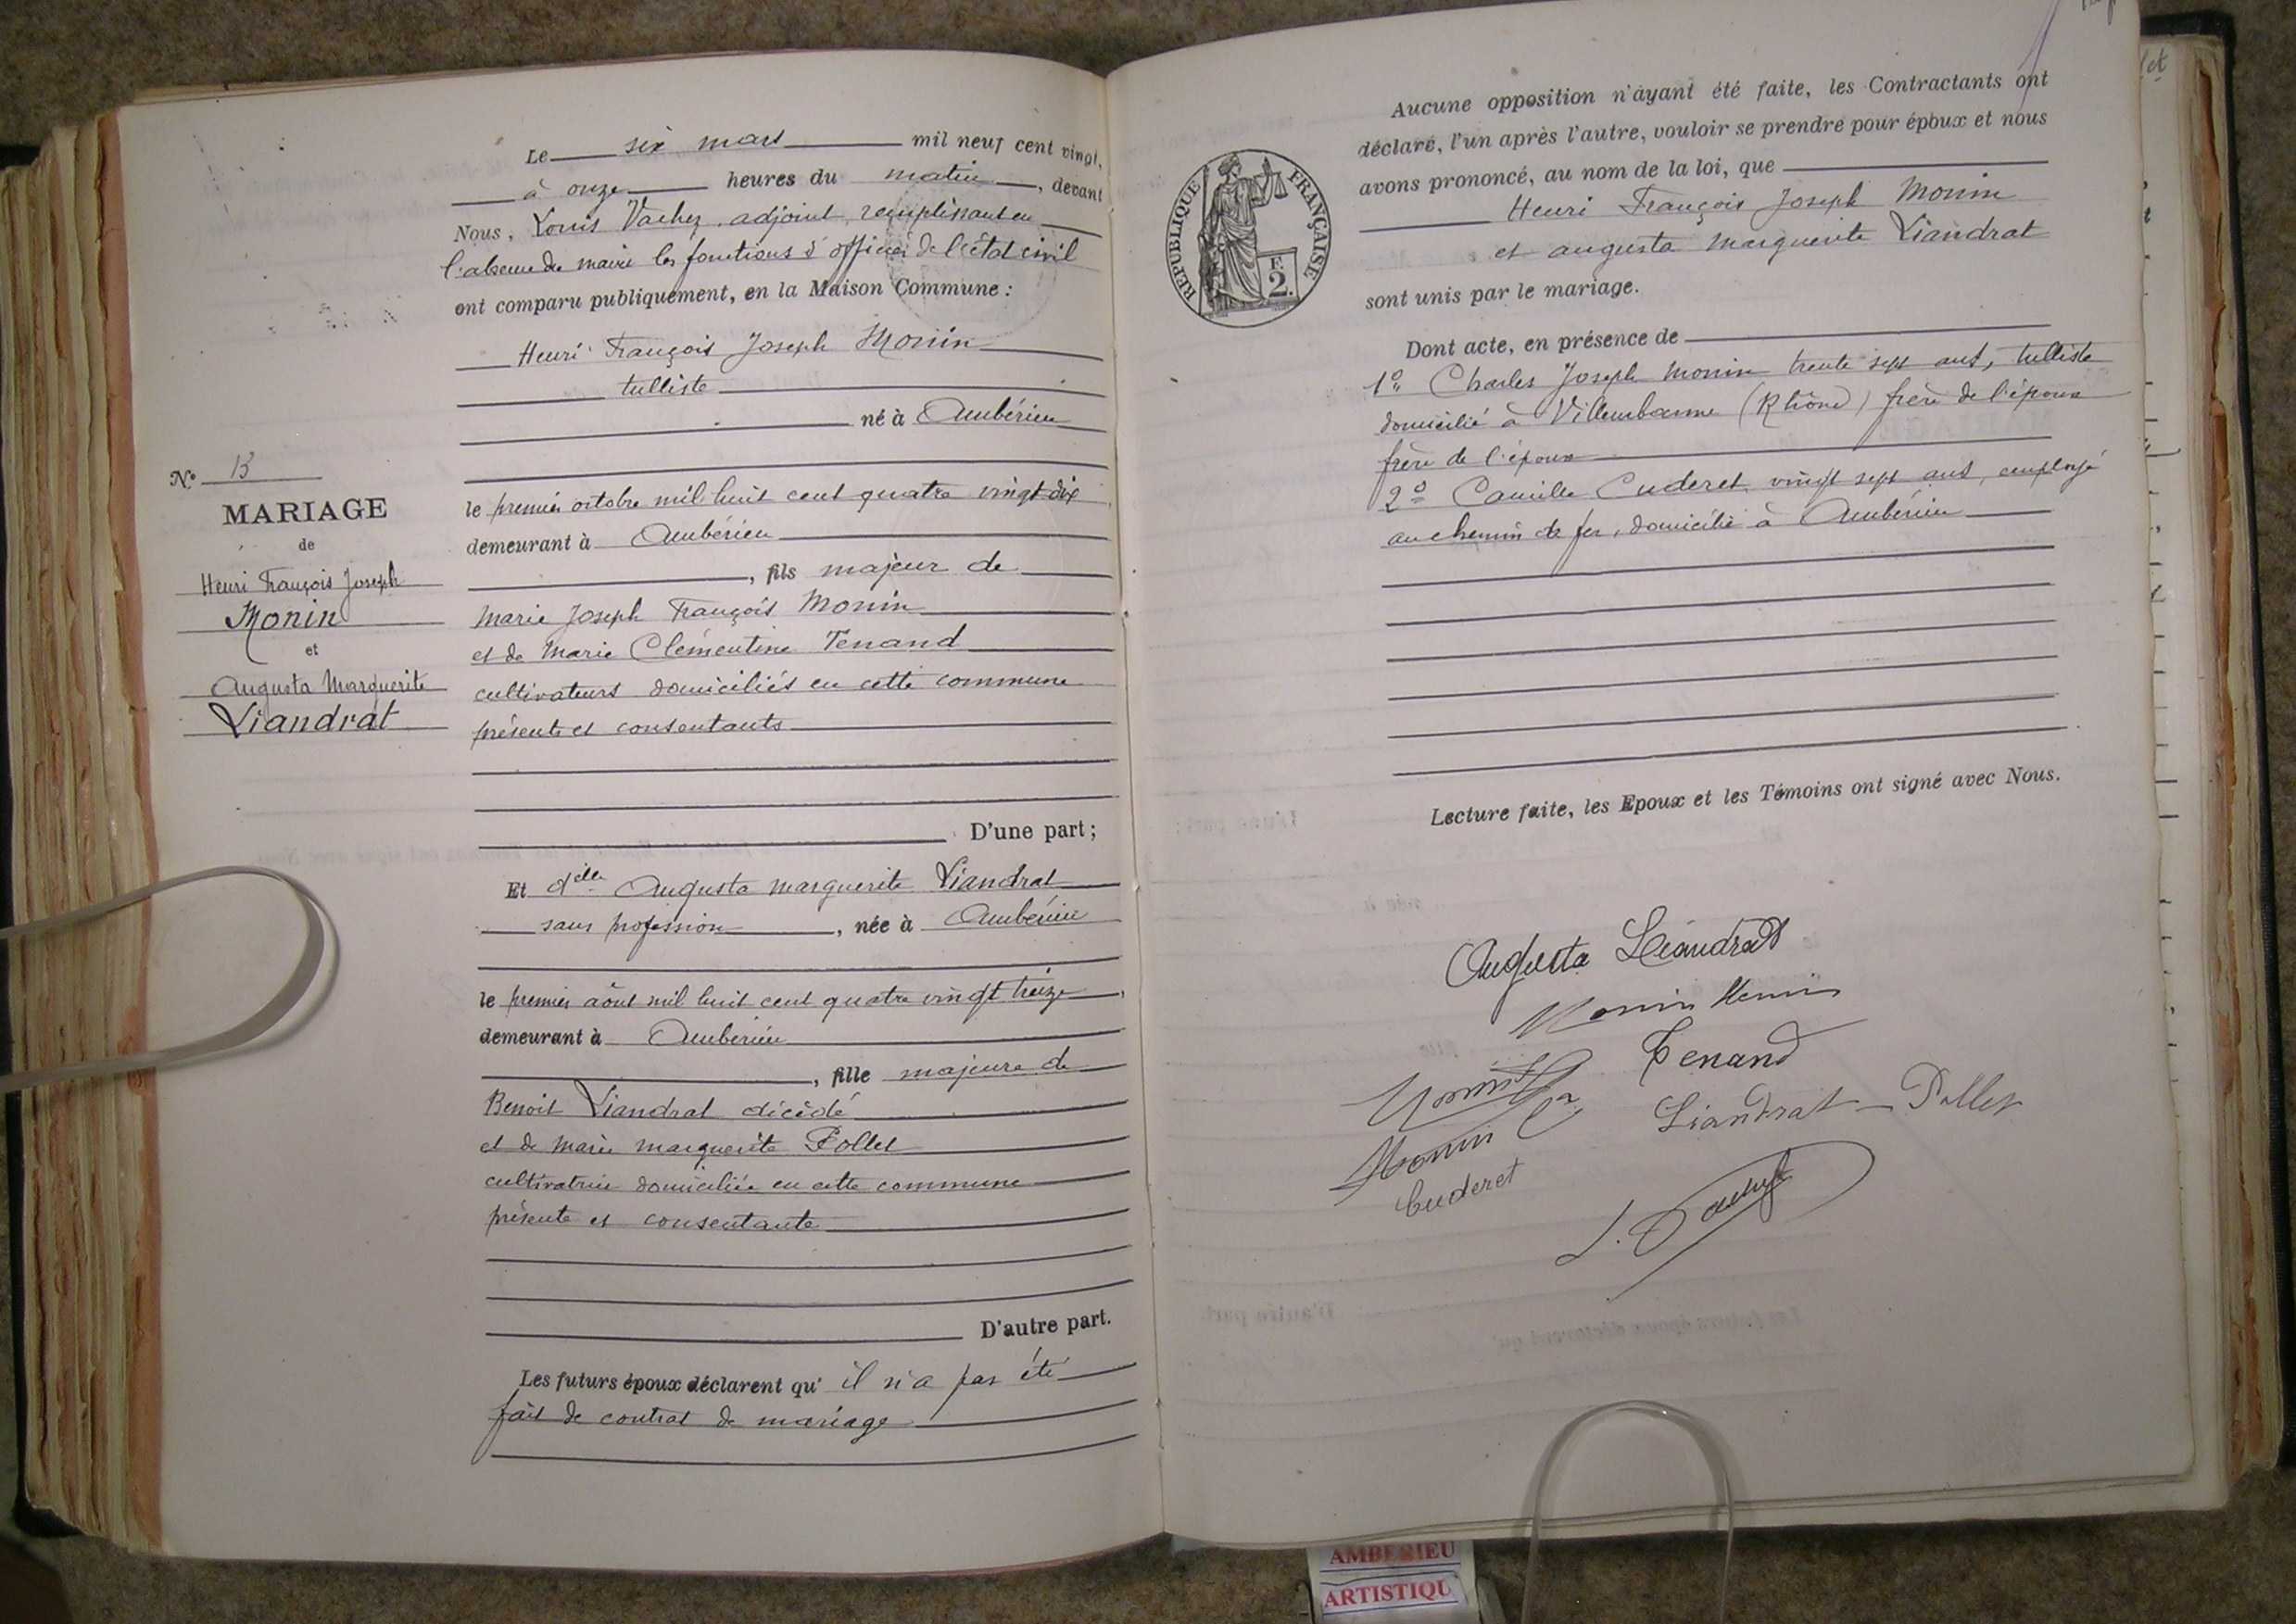 Le six mars mil neuf cent vingt,
à onze heures du matin, devant
Nous, Louis Vachez, adjoint, remplissant en
l'absence du maire les fonctions d'officier de l'état civil
ont comparu publiquement, en la Maison Commune :
Henri François Joseph Monin
tulliste
né à Ambérieu
le premier octobre mil huit cent quatre vingt dix
demeurant à Ambérieu
, fils majeur de
Marie Joseph François Monin
et de Marie Clémentine Tenand
cultivateurs domiciliés en cette commune
présents et consentants
D'une part ;
Et dlle Augusta Marguerite Liandrat
sans profession, née à Ambérieu
le premier août mil huit cent quatre vingt treize
demeurant à Ambérieu
, fille majeure de
Benoit Liandrat décédé
et de Marie Marguerite Pollet
cultivatrice domiciliée en cette commune
présente et consentante
D'autre part.
Les futurs époux déclarent qu'il n'a pas été
fait de contrat de mariage
N° 13
MARIAGE
de
Henri François Joseph
Monin
et
Augusta Marguerite
Liandrat
RÉPUBLIQUE FRANÇAISE
F.
2.
Aucune opposition n'ayant été faite, les Contractants ont
déclaré, l'un après l'autre, vouloir se prendre pour époux et nous
avons prononcé, au nom de la loi, que
Henri François Joseph Monin
et Augusta Marguerite Liandrat
sont unis par le mariage.
Dont acte, en présence de
1° Charles Joseph Monin trente sept ans, tulliste
domicilié à Villeurbanne (Rhône) frère de l'époux
frère de l'époux
2° Camille Cuderet vingt sept ans, employé
au chemin de fer, domicilié à Ambérieu
Lecture faite, les Epoux et les Témoins ont signé avec Nous.
Augusta Liandrat
Monin Henri
Tenand
Monin
Liandrat - Pollet
Monin
Cuderet
AMBERIEU
ARTISTIQU